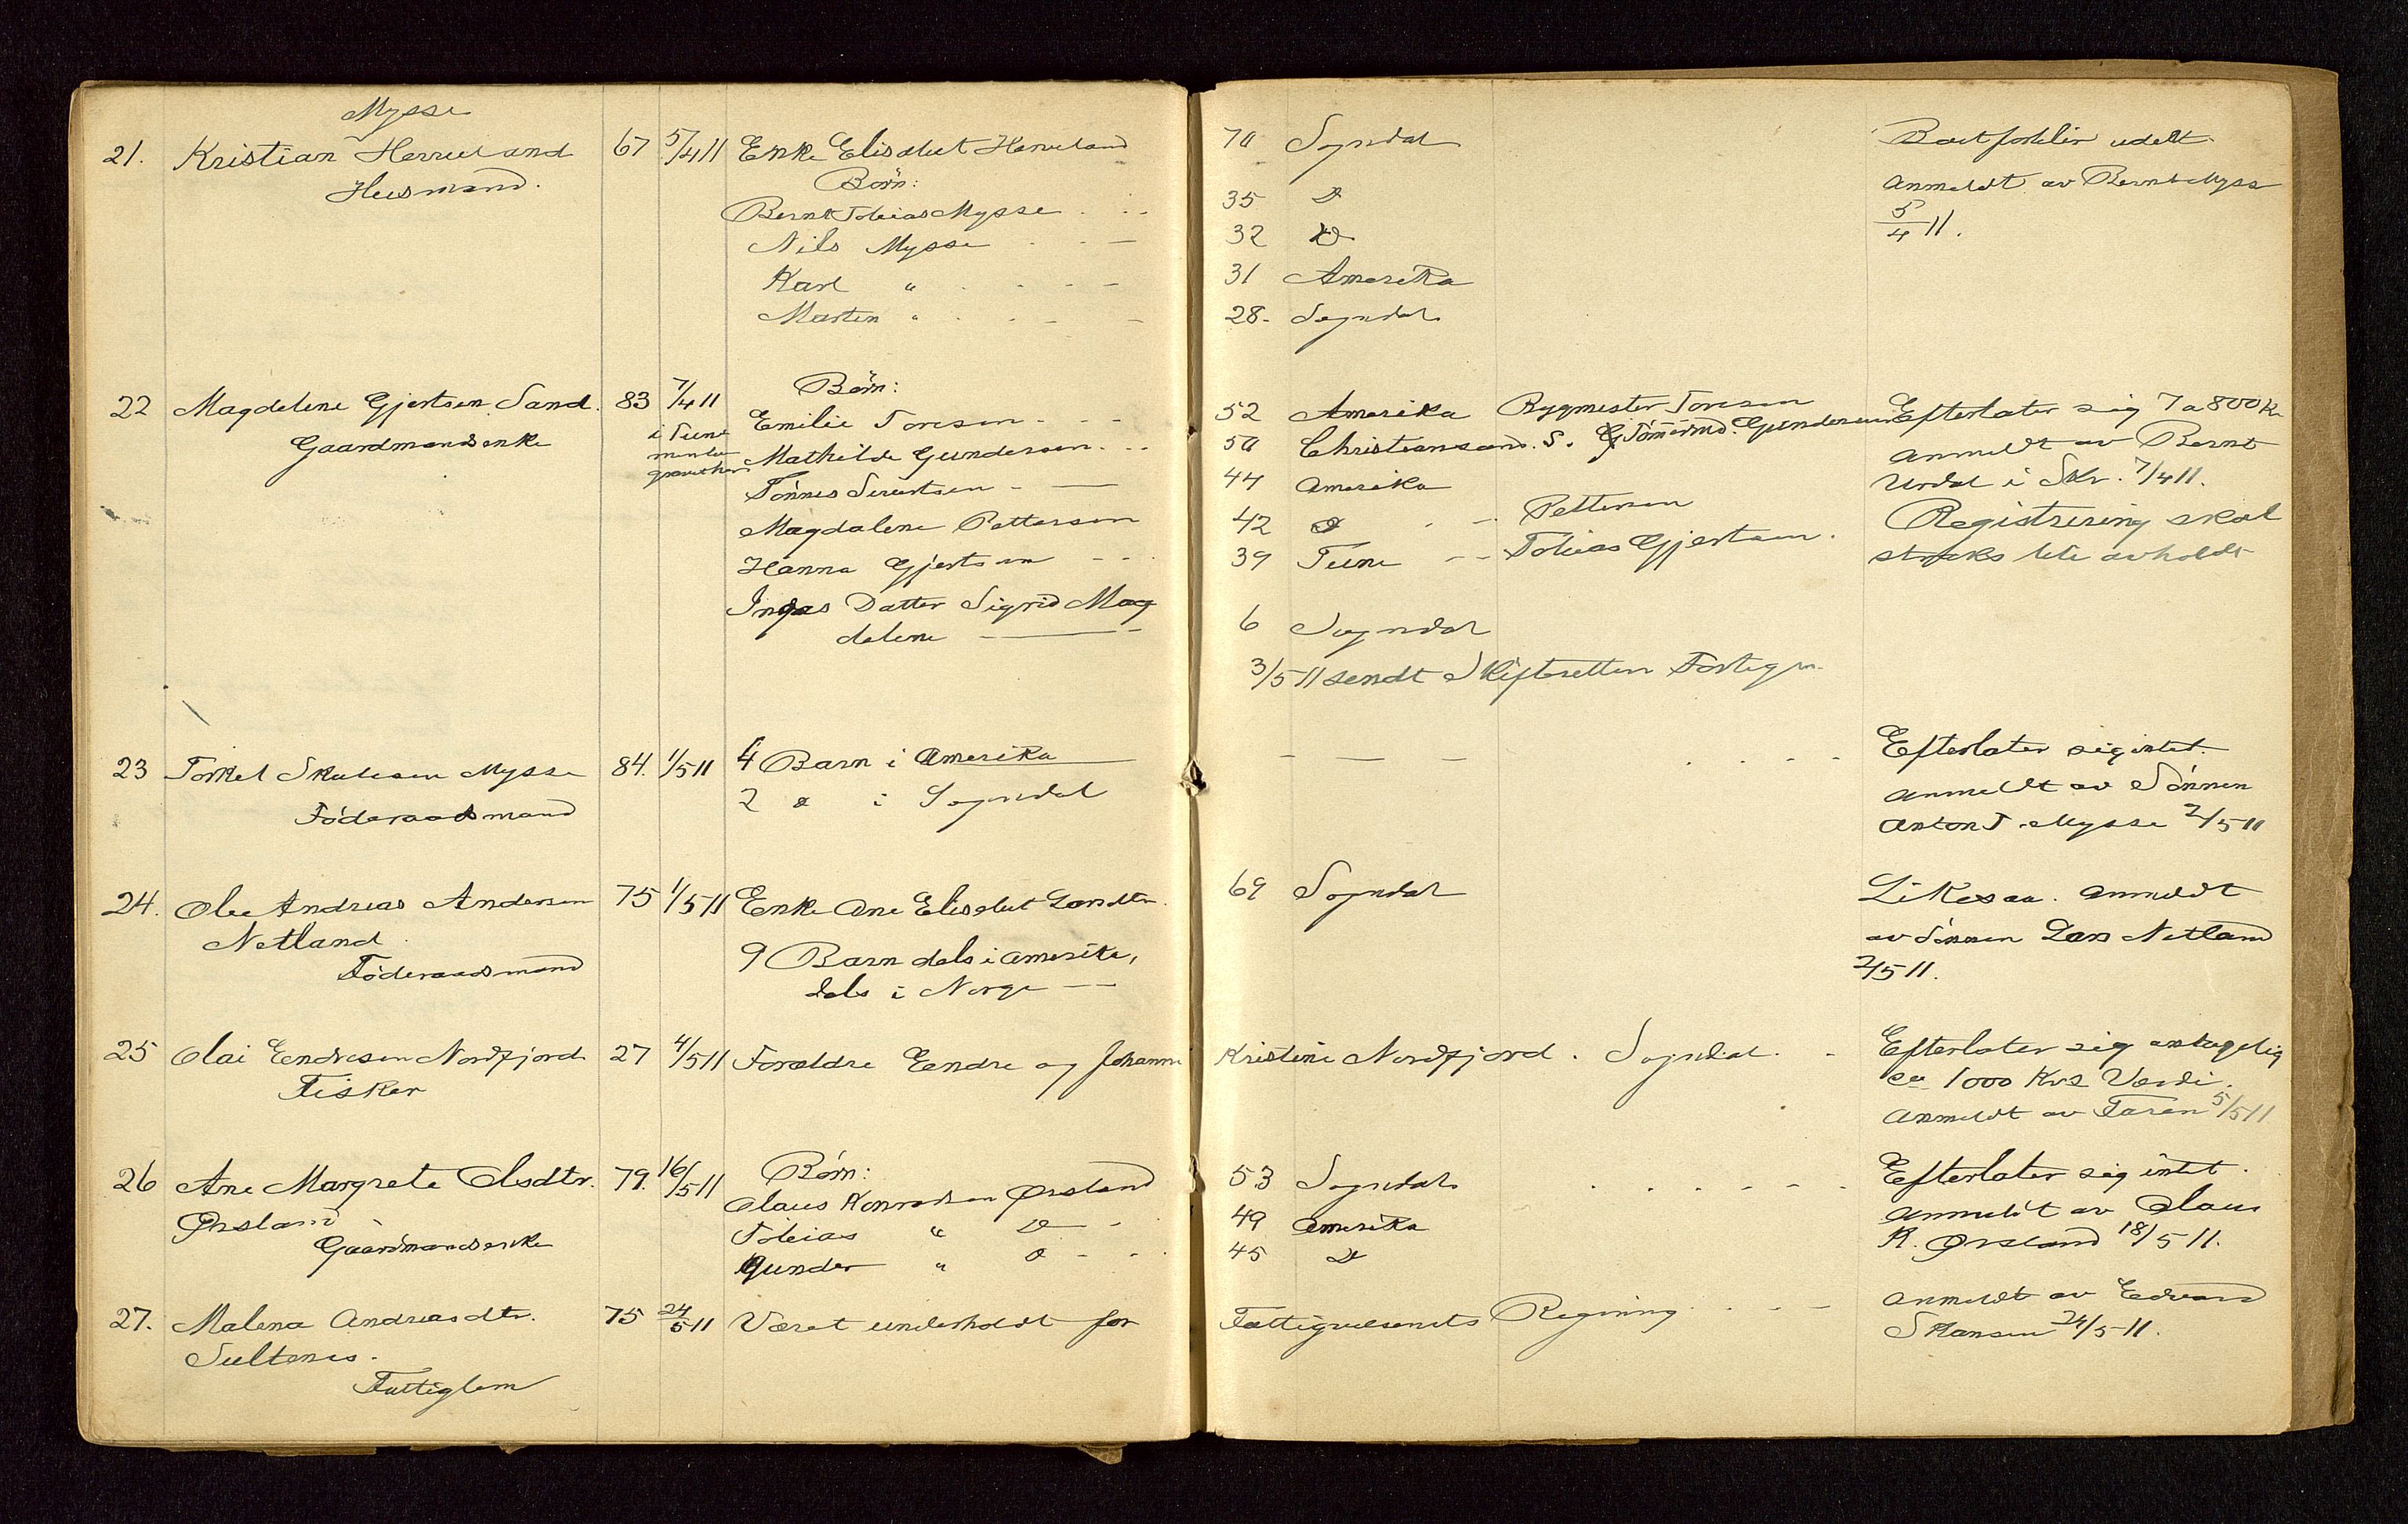 Mysse
21. Kristian Herreland 67 5/4 11 Enke Elisabet Herreland 70 Sogndal
Husmand. Børn:
Bernt Tobias Mysse 35 Do
Nils Mysse 32 Do
Karl " 31 Amerika
Martin " 28 Sogndal
Boet forblir udelt
anmeldt av Bernt Mysse
5/4 11.
22 Magdelene Gjertsen Sand. 83 7/4 11 Børn:
Gaardmandsenke i Tune
Emilie Toresen 52 Amerika Bygmester Toresen
Mathilde Gundersen 50 Christiansand S. Gundersen
Tønnes Sivertsen 44 Amerika
Magdalene Pettersen 42 Do Pettersen
Hanna Gjertsen 39 Tune Tobias Gjertsen.
Ingas Datter Sigrid Mag
delene 6 Sogndal
3/5 11 sendt Skifteretten Fortegn.
Efterlater sig 7 a 800 Kr
anmeldt av Bernt
Urdal i Skr. 7/4 11.
Registrering skal
straks bli avholdt
23 Torkel Skulesen Mysse 84. 1/5 11 4 Barn i Amerika
Føderaadsmand 2 do i Sogndal
Efterlater sig intet.
anmeldt av Sønnen
Anton T. Mysse 2/5 11
24. Ole Andreas Andersen 75 1/5 11 Enke Ane Elisabet Larsdtr. 69 Sogndal
Netland
Føderaadsmand
9 Barn dels i Amerika,
dels i Norge
Likesaa. anmeldt
av Sønnen Lars Netland
2/5 11.
25 Olai Endresen Nordfjord 27 4/5 11 Forældre Eendre og Johanne Kristine Nordfjord. Sogndal.
Fisker
Efterlater sig antagelig
ca 1000 Krs Værdi.
anmeldt av Faren 5/5 11
26 Ane Margrete Olsdtr. 79. 16/5 11 Børn:
Ørsland
Gaardmandsenke
Olaus Konradsen Ørsland 53 Sogndal
Tobias " Do 49 Amerika
Gunder " do 45 Do
Efterlater sig intet.
anmeldt av Olaus
K. Ørsland 18/5 11.
27. Malena Andreasdtr. 75 24/5 11 Været underholdt for Fattigvæsenets Regning
Sultenes.
Fattiglem
anmeldt av Edvard
Skansen 24/5 11.